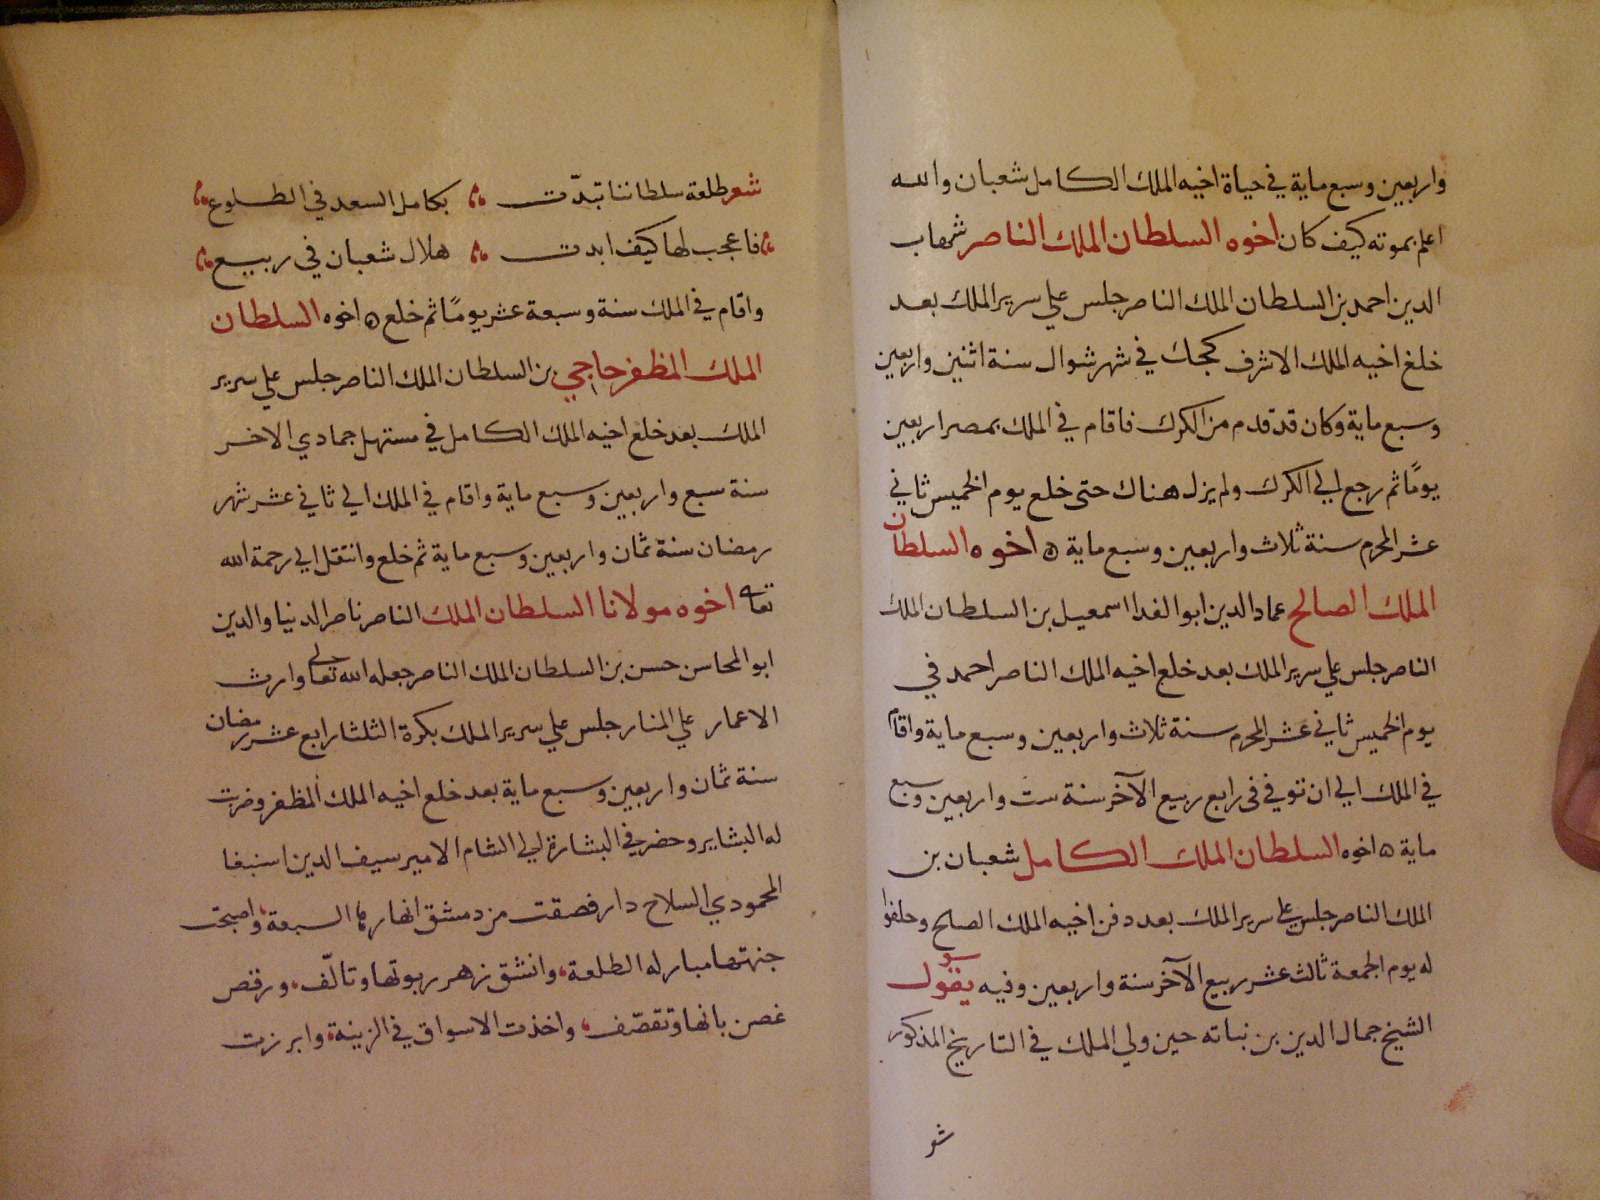 واربعين وسبع ماية في حياة اخيه الملك الكامل شعبان والله
اعلم بموته كيف كان اخوه السلطان الملك الناصر شهاب
الدين احمد بن السلطان الملك الناصر جلس علي سرير الملك بعد
خلع اخيه الملك الاشرف كجك في شهر شوال سنة اثنين واربعين
وسبع ماية وكان قد قدم من الكرك فاقام في الملك بمصر اربعين
يومًا ثم رجع الي الكرك ولم يزل هناك حتى خلع يوم الخميس ثاني
عشر المحرم سنة ثلاث واربعين وسبع ماية ه اخوه السلطان
الملك الصالح عماد الدين ابو الفدا اسمعيل بن السلطان الملك
الناصر جلس علي سرير الملك بعد خلع اخيه الملك الناصر احمد في
يوم الخميس ثاني عشر المحرم سنة ثلاث واربعين وسبع ماية واقام
في الملك الي ان توفي في رابع ربيع الآخر سنة ست واربعين وسبع
ماية ه اخوه السلطان الملك الكامل شعبان بن
الملك الناصر جلس علي سرير الملك بعد دفن اخيه الملك الصلح وحلفوا
له يوم الجمعة ثالث عشر ربيع الآخر سنة واربعين وفيه يقول
الشيخ جمال الدين بن نباته حين ولي الملك في التاريخ المذكور
شو
شعر طلعة سلطاننا تبدّت بكامل السعد في الطلوع
فاعجب لها كيف ابدت هلال شعبان في ربيع
واقام في الملك سنة وسبعة عشر يومًا ثم خلع ه اخوه السلطان
الملك المظفر حاجي بن السلطان الملك الناصر جلس علي سرير
الملك بعد خلع اخيه الملك الكامل في مستهل جمادي الاخر
سنة سبع واربعين وسبع ماية واقام في الملك الي ثاني عشر شهر
رمضان سنة ثمان واربعين وسبع ماية ثم خلع وانتقل الي رحمة الله
تعالى اخوه مولانا السلطان الملك الناصر ناصر الدنيا والدين
ابو المحاسن حسن بن السلطان الملك الناصر جعله الله تعالي وارث
الاعمار علي المنار جلس علي سرير الملك بكرة الثلثا رابع عشر رمضان
سنة ثمان واربعين وسبع ماية بعد خلع اخيه الملك المظفر وضربت
له البشاير وحضر في البشارة الي الشام الامير سيف الدين اسنبغا
المحمودي السلاح دار فصفقت من دمشق انهارها السبعة واصبحت
جنتها مباركه الطلعة وانشق زهر ربوتها وتالّف ورقص
غصن بانها وتقصّف واخذت الاسواق في الزينة وابرزت